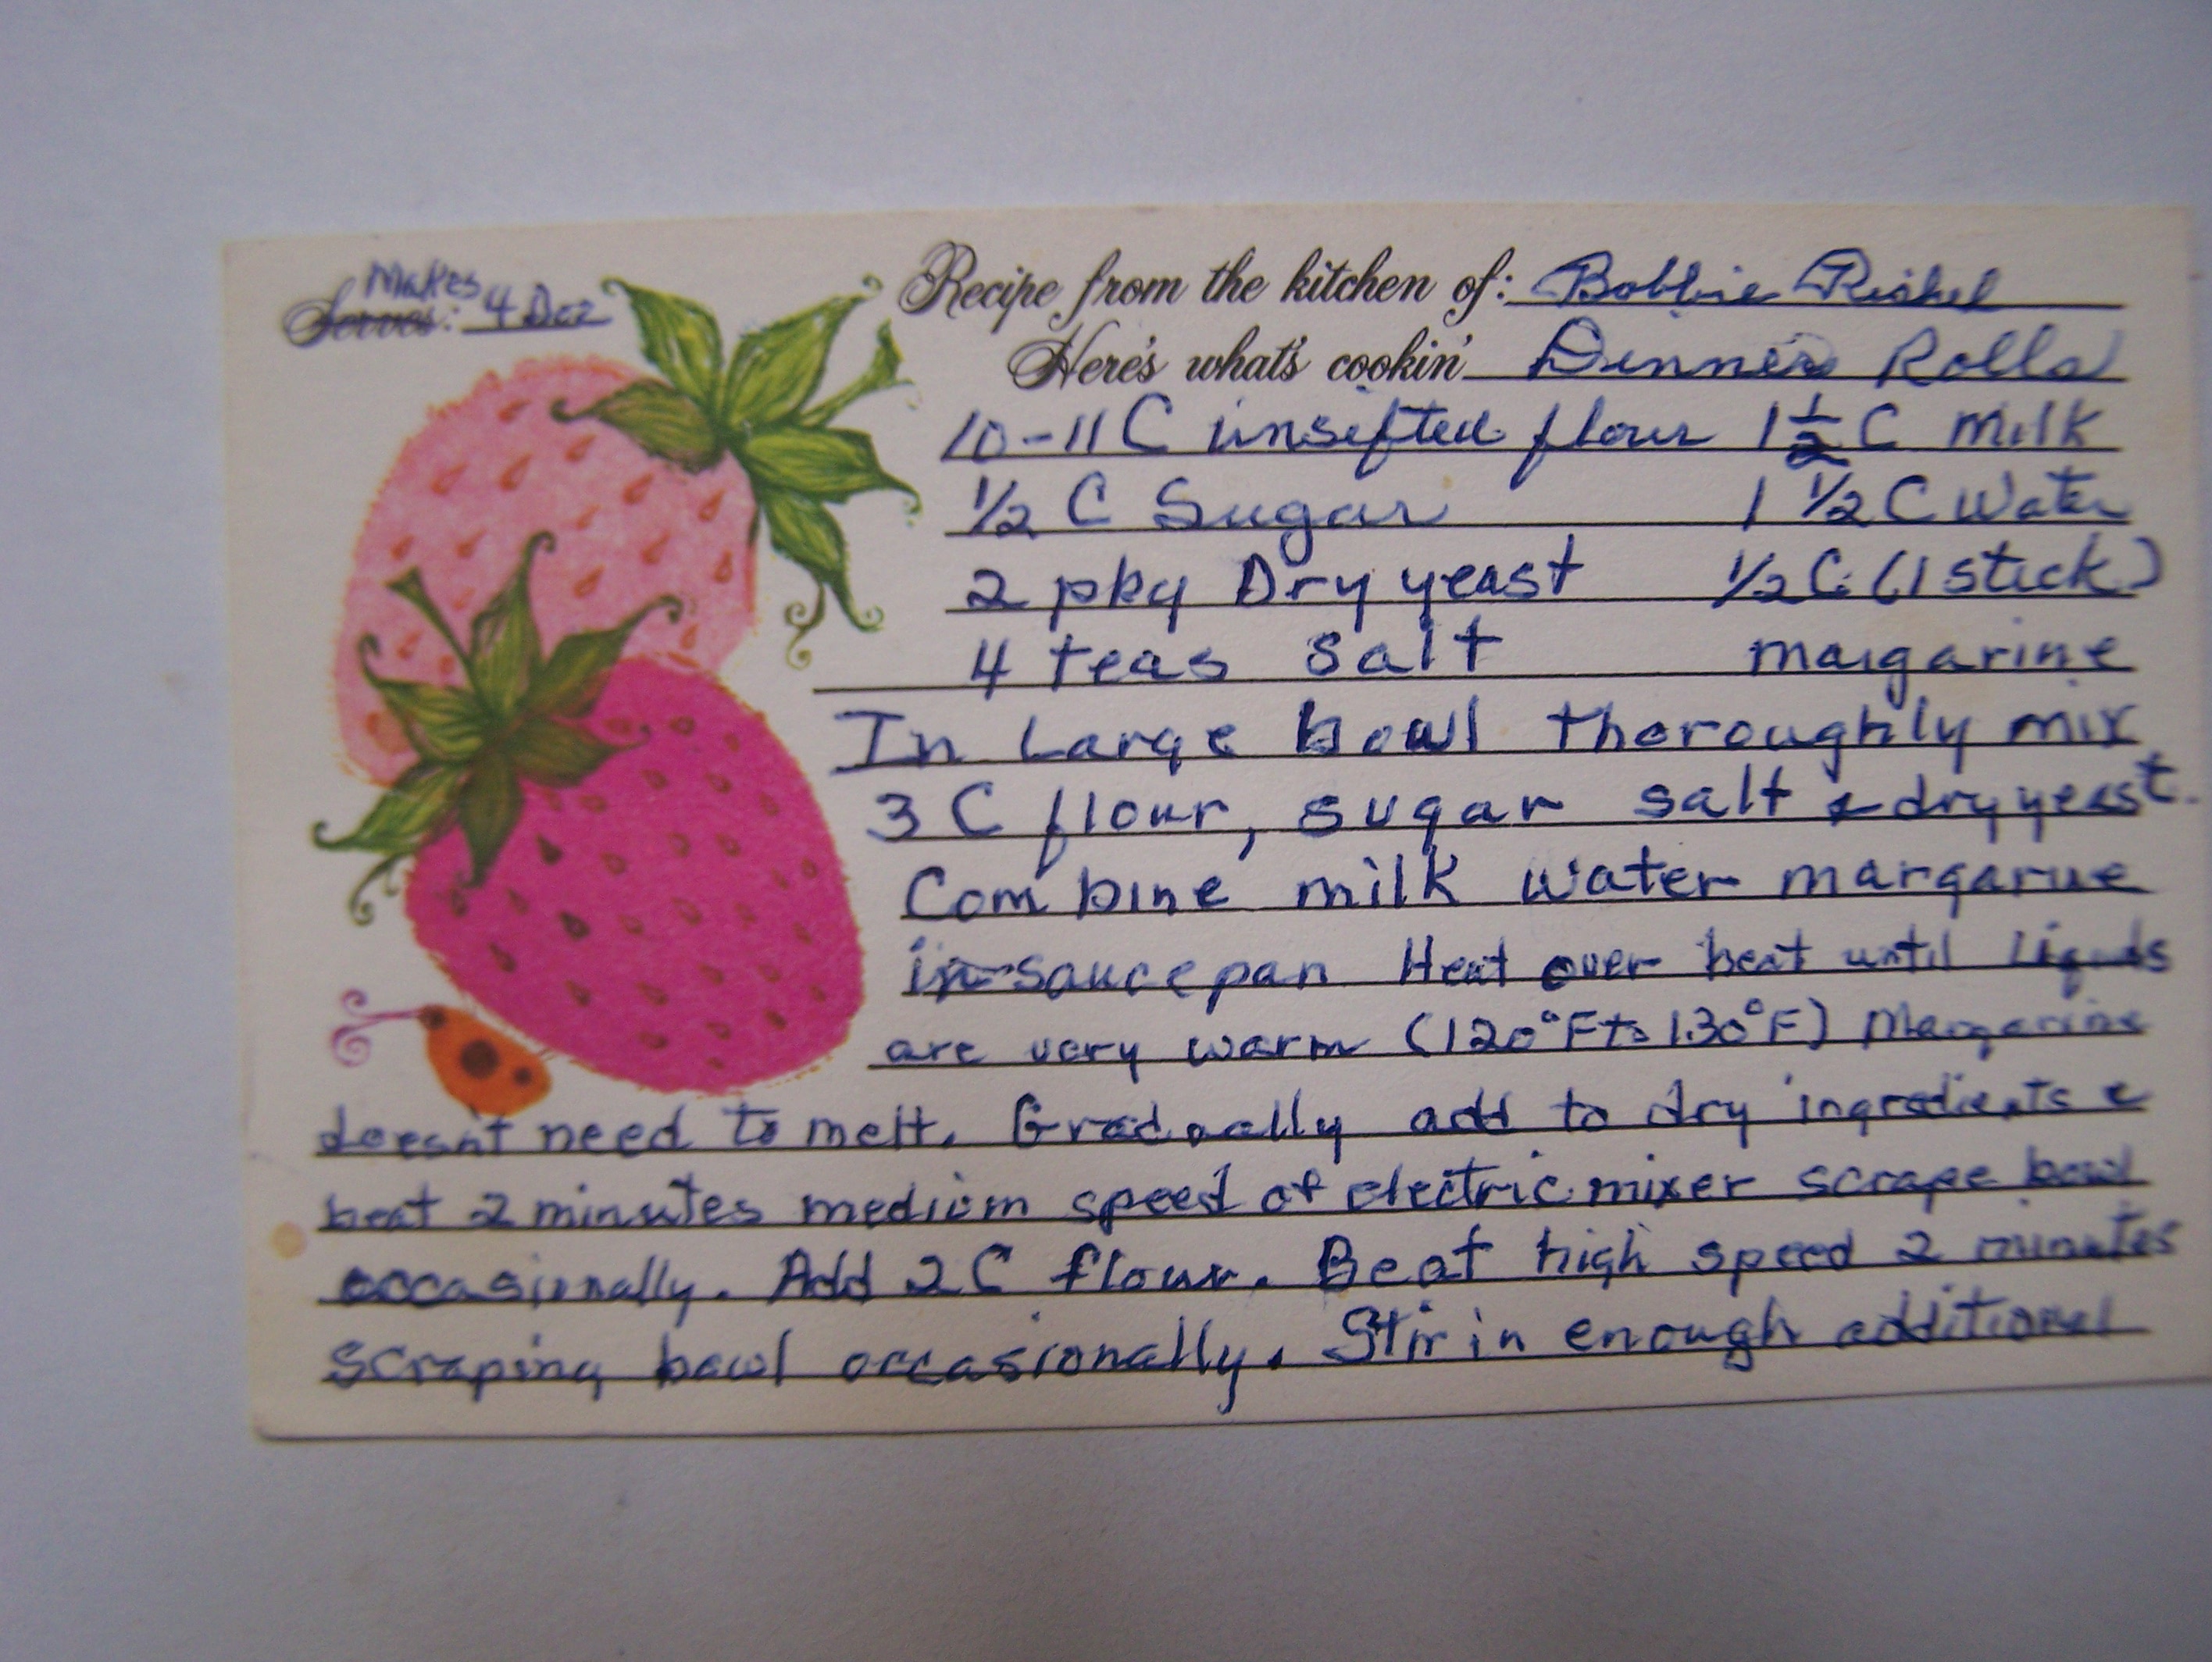 Makes
Serves: 4 Doz
Recipe from the kitchen of: Bobbie
Here's what's cookin' Dinner Rolls
10-11 C unsifted flour 1 1/2 C milk
1/2 C Sugar 1 1/2 C Water
2 pkg Dry yeast 1/2 C (1 stick)
4 teas salt margarine
In Large bowl thoroughly mix
3 C flour, sugar salt & dry yeast.
Combine milk water margarine
in saucepan Heat over heat until Liquids
are very warm (120°F to 130°F) Margarine
doesn't need to melt. Gradually add to dry ingredients &
beat 2 minutes medium speed of electric mixer scrape bowl
occasionally. Add 2 C flour. Beat high speed 2 minutes
scraping bowl occasionally. Stir in enough additional